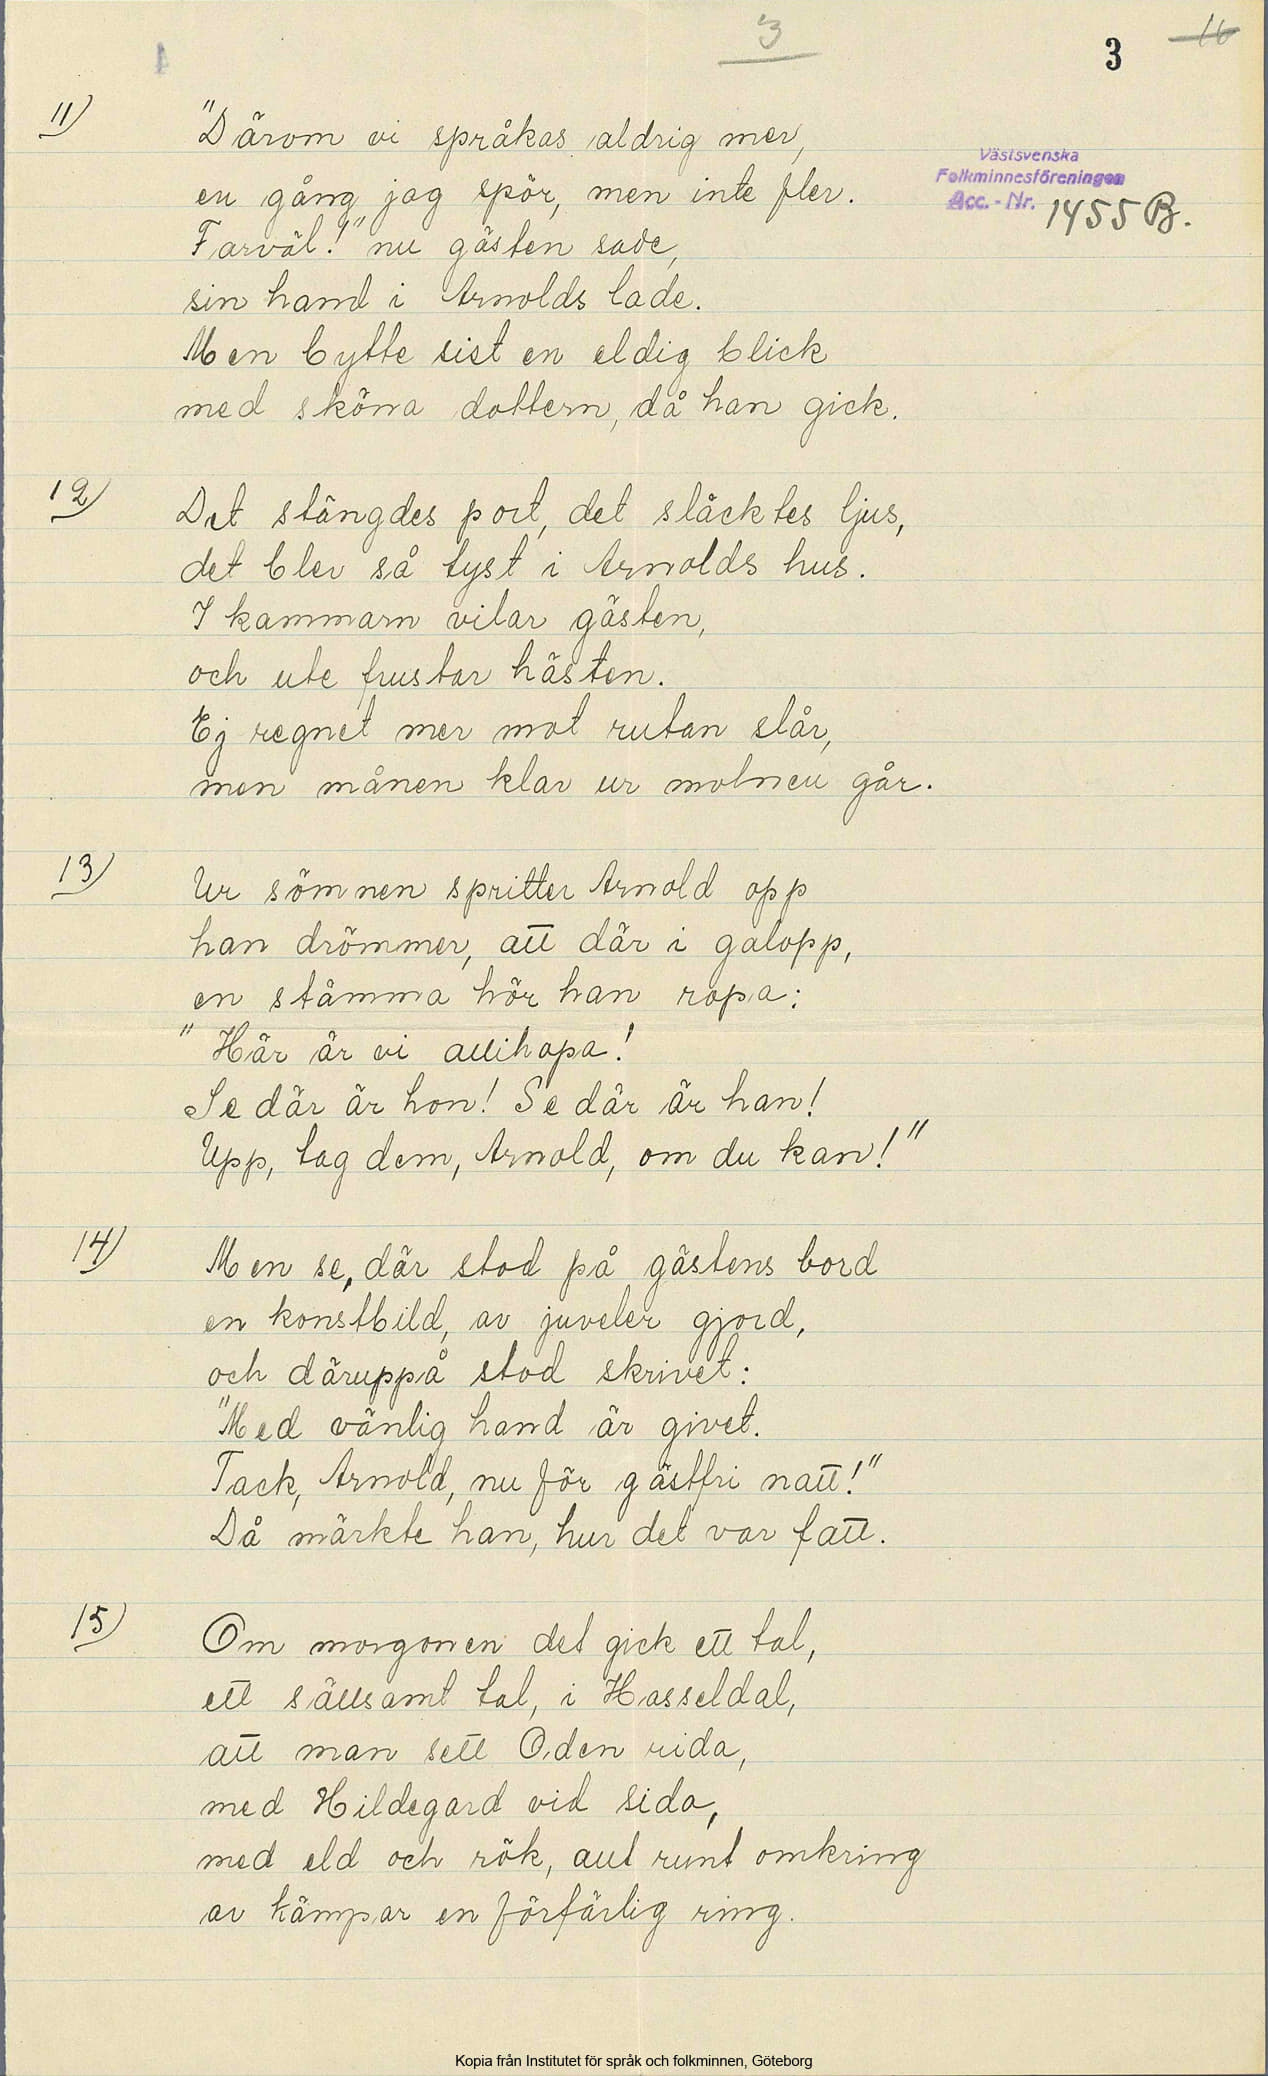 3
3
16
11)
"Därom vi språkas aldrig mer,
en gång jag spör, men inte fler.
Farväl!" nu gästen sade,
sin hand i Arnolds lade.
Men bytte sist en eldig blick
med sköna dottern, då han gick.
Västsvenska
Folkminnesföreningen
Acc. - Nr. 1455 B.
12)
Det stängdes port, det släcktes ljus,
det blev så tyst i Arnolds hus.
I kammarn vilar gästen,
och ute frustar hästen.
Ej regnet mer mot rutan slår,
men månen klar ur molnen går.
13)
Ur sömnen spritter Arnold opp
han drömmer, att där i galopp,
en stämma hör han ropa:
"Här är vi allihopa!
Se där är hon! Se där är han!
Upp, tag dem, Arnold, om du kan!"
14)
Men se, där stod på gästens bord
en konstbild, av juveler gjord,
och däruppå stod skrivet:
"Med vänlig hand är givet.
Tack, Arnold, nu för gästfri natt!"
Då märkte han, hur det var fatt.
15)
Om morgonen det gick ett tal,
ett sällsamt tal, i Hasseldal,
att man sett Oden rida,
med Hildegard vid sida,
med eld och rök, allt runt omkring
av kämpar en förfärlig ring.
Kopia från Institutet för språk och folkminnen, Göteborg